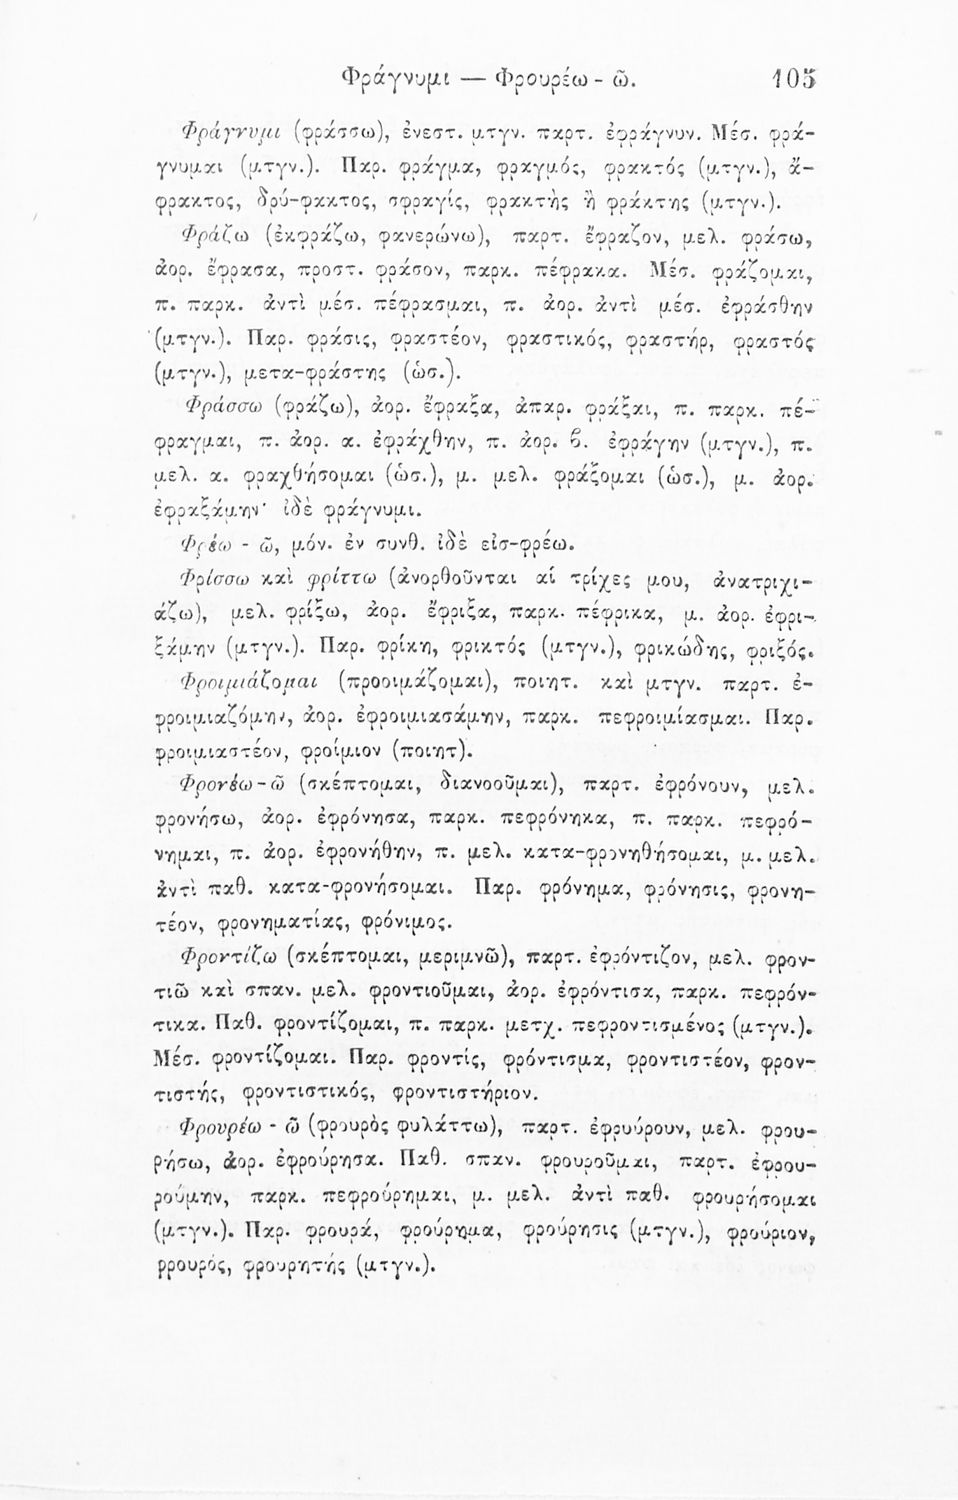 Φράγνυμι — Φρουρέω - ῶ. 105
Φράγνυμι (φράσσω), ἐνεστ. μτγν. παρτ. ἐφράγνυν. Μέσ. φρά-
γνυμαι (μτγν.). Παρ. φράγμα, φραγμός, φρακτός (μτγν.), ἄ-
φρακτος, δρύ-φακτος, σφραγίς, φρακτὴς ἢ φράκτης (μτγν.).
Φράζω (ἐκφράζω, φανερώνω), παρτ. ἔφραζον, μελ. φράσω,
ἀορ. ἔφρασα, προστ. φράσον, παρκ. πέφρακα. Μέσ. φράζομαι,
π. παρκ. ἀντὶ μέσ. πέφρασμαι, π. ἀορ. ἀντὶ μέσ. ἐφράσθην
(μτγν.). Παρ. φράσις, φραστέον, φραστικός, φραστήρ, φραστός
(μτγν.), μετα-φράστης (ὡσ.).
Φράσσω (φράζω), ἀορ. ἔφραξα, ἀπαρ. φράξαι, π. παρκ. πέ-
φραγμαι, π. ἀορ. α. ἐφράχθην, π. ἀορ. β. ἐφράγην (μτγν.), π.
μελ. α. φραχθήσομαι (ὡσ.), μ. μελ. φράξομαι (ὡσ.), μ. ἀορ.
ἐφραξάμην· ἰδὲ φράγνυμι.
Φρέω - ῶ, μόν. ἐν συνθ. ἰδὲ εἰσ-φρέω.
Φρίσσω καὶ φρίττω (ἀνορθοῦνται αἱ τρίχες μου, ἀνατριχι-
άζω), μελ. φρίξω, ἀορ. ἔφριξα, παρκ. πέφρικα, μ. ἀορ. ἐφρι-
ξάμην (μτγν.). Παρ. φρίκη, φρικτός (μτγν.), φρικώδης, φριξός.
Φροιμιάζομαι (προοιμάζομαι), ποιητ. καὶ μτγν. παρτ. ἐ-
φροιμιαζόμην, ἀορ. ἐφροιμιασάμην, παρκ. πεφροιμίασμαι. Παρ.
φροιμιαστέον, φροίμιον (ποιητ).
Φρονέω - ῶ (σκέπτομαι, διανοοῦμαι), παρτ. ἐφρόνουν, μελ.
φρονήσω, ἀορ. ἐφρόνησα, παρκ. πεφρόνηκα, π. παρκ. πεφρό-
νημαι, π. ἀορ. ἐφρονήθην, π. μελ. κατα-φρονηθήσομαι, μ. μελ.
ἀντὶ παθ. κατα-φρονήσομαι. Παρ. φρόνημα, φρόνησις, φρονη-
τέον, φρονηματίας, φρόνιμος.
Φροντίζω (σκέπτομαι, μεριμνῶ), παρτ. ἐφρόντιζον, μελ. φρον-
τιῶ καὶ σπαν. μελ. φροντιοῦμαι, ἀορ. ἐφρόντισα, παρκ. πεφρόν-
τικα. Παθ. φροντίζομαι, π. παρκ. μετχ. πεφροντισμένος (μτγν.).
Μέσ. φροντίζομαι. Παρ. φροντίς, φρόντισμα, φροντιστέον, φρον-
τιστής, φροντιστικός, φροντιστήριον.
Φρουρέω - ῶ (φρουρὸς φυλάττω), παρτ. ἐφρυύρουν, μελ. φρου-
ρήσω, ἀορ. ἐφρούρησα. Παθ. σπαν. φρουροῦμαι, παρτ. ἐφρου-
ρούμην, παρκ. πεφρούρημαι, μ. μελ. ἀντὶ παθ. φρουρήσομαι
(μτγν.). Παρ. φρουρά, φρούρημα, φρούρησις (μτγν.), φρούριον,
φρουρός, φρουρητής (μτγν.).